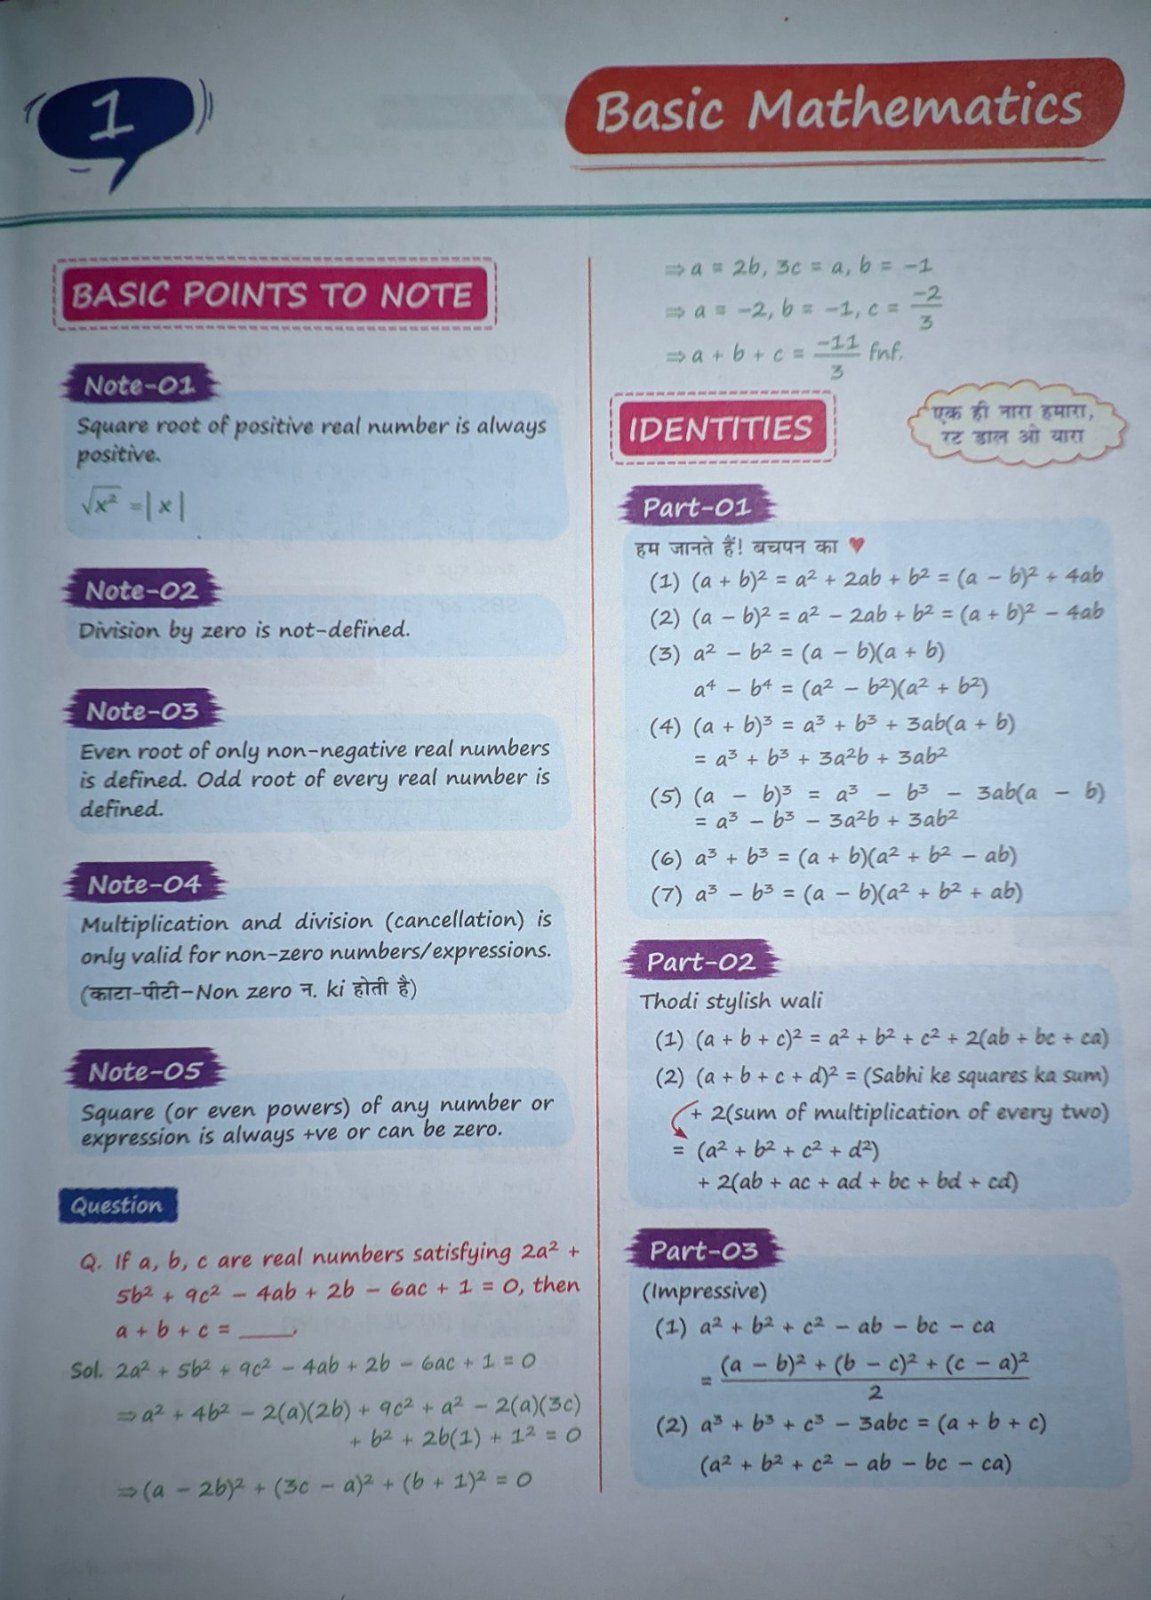 1
Basic Mathematics
BASIC POINTS TO NOTE
Note-01
Square root of positive real number is always
positive.
√x² = |x|
Note-02
Division by zero is not-defined.
Note-03
Even root of only non-negative real numbers
is defined. Odd root of every real number is
defined.
Note-04
Multiplication and division (cancellation) is
only valid for non-zero numbers/expressions.
(काटा-पीटी–Non zero न. ki होती है)
Note-05
Square (or even powers) of any number or
expression is always +ve or can be zero.
Question
Q. If a, b, c are real numbers satisfying 2a² +
5b² + 9c² − 4ab + 2b − 6ac + 1 = 0, then
a + b + c = ____.
Sol. 2a² + 5b² + 9c² − 4ab + 2b − 6ac + 1 = 0
⇒ a² + 4b² − 2(a)(2b) + 9c² + a² − 2(a)(3c)
+ b² + 2b(1) + 1² = 0
⇒ (a − 2b)² + (3c − a)² + (b + 1)² = 0
⇒ a = 2b, 3c = a, b = −1
⇒ a = −2, b = −1, c = −2/3
⇒ a + b + c = −11/3 fnf.
IDENTITIES
एक ही नारा हमारा,
रट डाल ओ यारा
Part-01
हम जानते हैं! बचपन का ♥
(1) (a + b)² = a² + 2ab + b² = (a − b)² + 4ab
(2) (a − b)² = a² − 2ab + b² = (a + b)² − 4ab
(3) a² − b² = (a − b)(a + b)
a⁴ − b⁴ = (a² − b²)(a² + b²)
(4) (a + b)³ = a³ + b³ + 3ab(a + b)
= a³ + b³ + 3a²b + 3ab²
(5) (a − b)³ = a³ − b³ − 3ab(a − b)
= a³ − b³ − 3a²b + 3ab²
(6) a³ + b³ = (a + b)(a² + b² − ab)
(7) a³ − b³ = (a − b)(a² + b² + ab)
Part-02
Thodi stylish wali
(1) (a + b + c)² = a² + b² + c² + 2(ab + bc + ca)
(2) (a + b + c + d)² = (Sabhi ke squares ka sum)
+ 2(sum of multiplication of every two)
= (a² + b² + c² + d²)
+ 2(ab + ac + ad + bc + bd + cd)
Part-03
(Impressive)
(1) a² + b² + c² − ab − bc − ca
= (a − b)² + (b − c)² + (c − a)² / 2
(2) a³ + b³ + c³ − 3abc = (a + b + c)
(a² + b² + c² − ab − bc − ca)